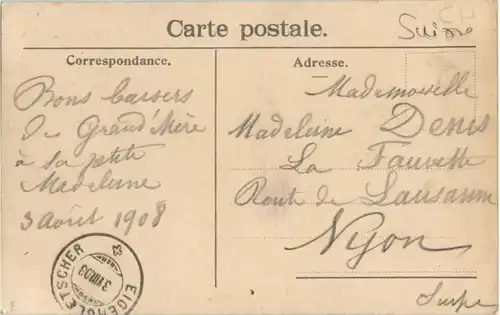 Carte postale.
Suisse
Correspondance.
Adresse.
Bons baisers
de Grand'Mère
à sa petite
Madeleine
3 août 1908
Mademoiselle
Madeleine Denis
La Fauvette
Route de Lausanne
Nyon
Suisse
EIGERGLETSCHER
3 VIII 09